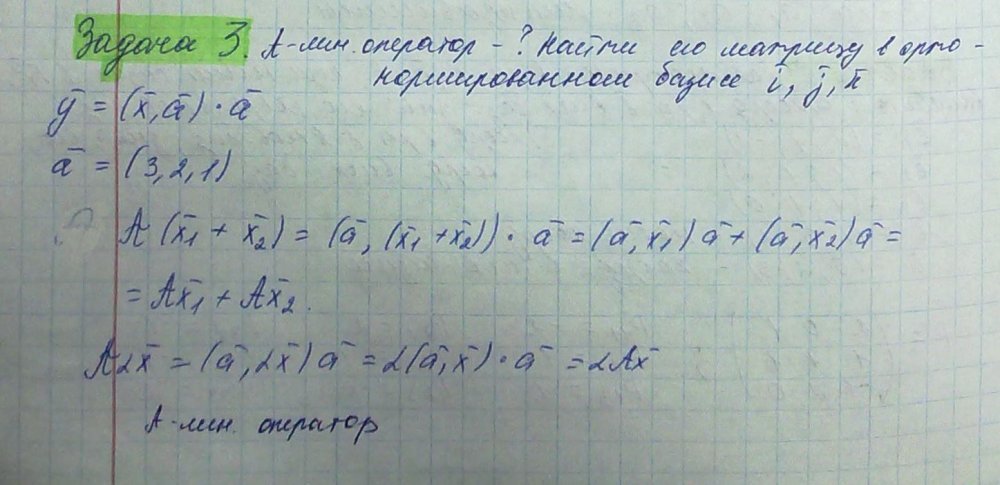 Задача 3. A-лин. оператор - ? Найти его матрицу в орто-
нормированном базисе i̅, j̅, k̅
y̅ = (x̅, a̅) · a̅
a̅ = (3, 2, 1)
A (x̅₁ + x̅₂) = (a̅, (x̅₁ + x̅₂)) · a̅ = (a̅, x̅₁) a̅ + (a̅, x̅₂) a̅ =
= Ax̅₁ + Ax̅₂.
Aαx̅ = (a̅, αx̅) a̅ = α(a̅, x̅) · a̅ = αAx̅
A-лин. оператор